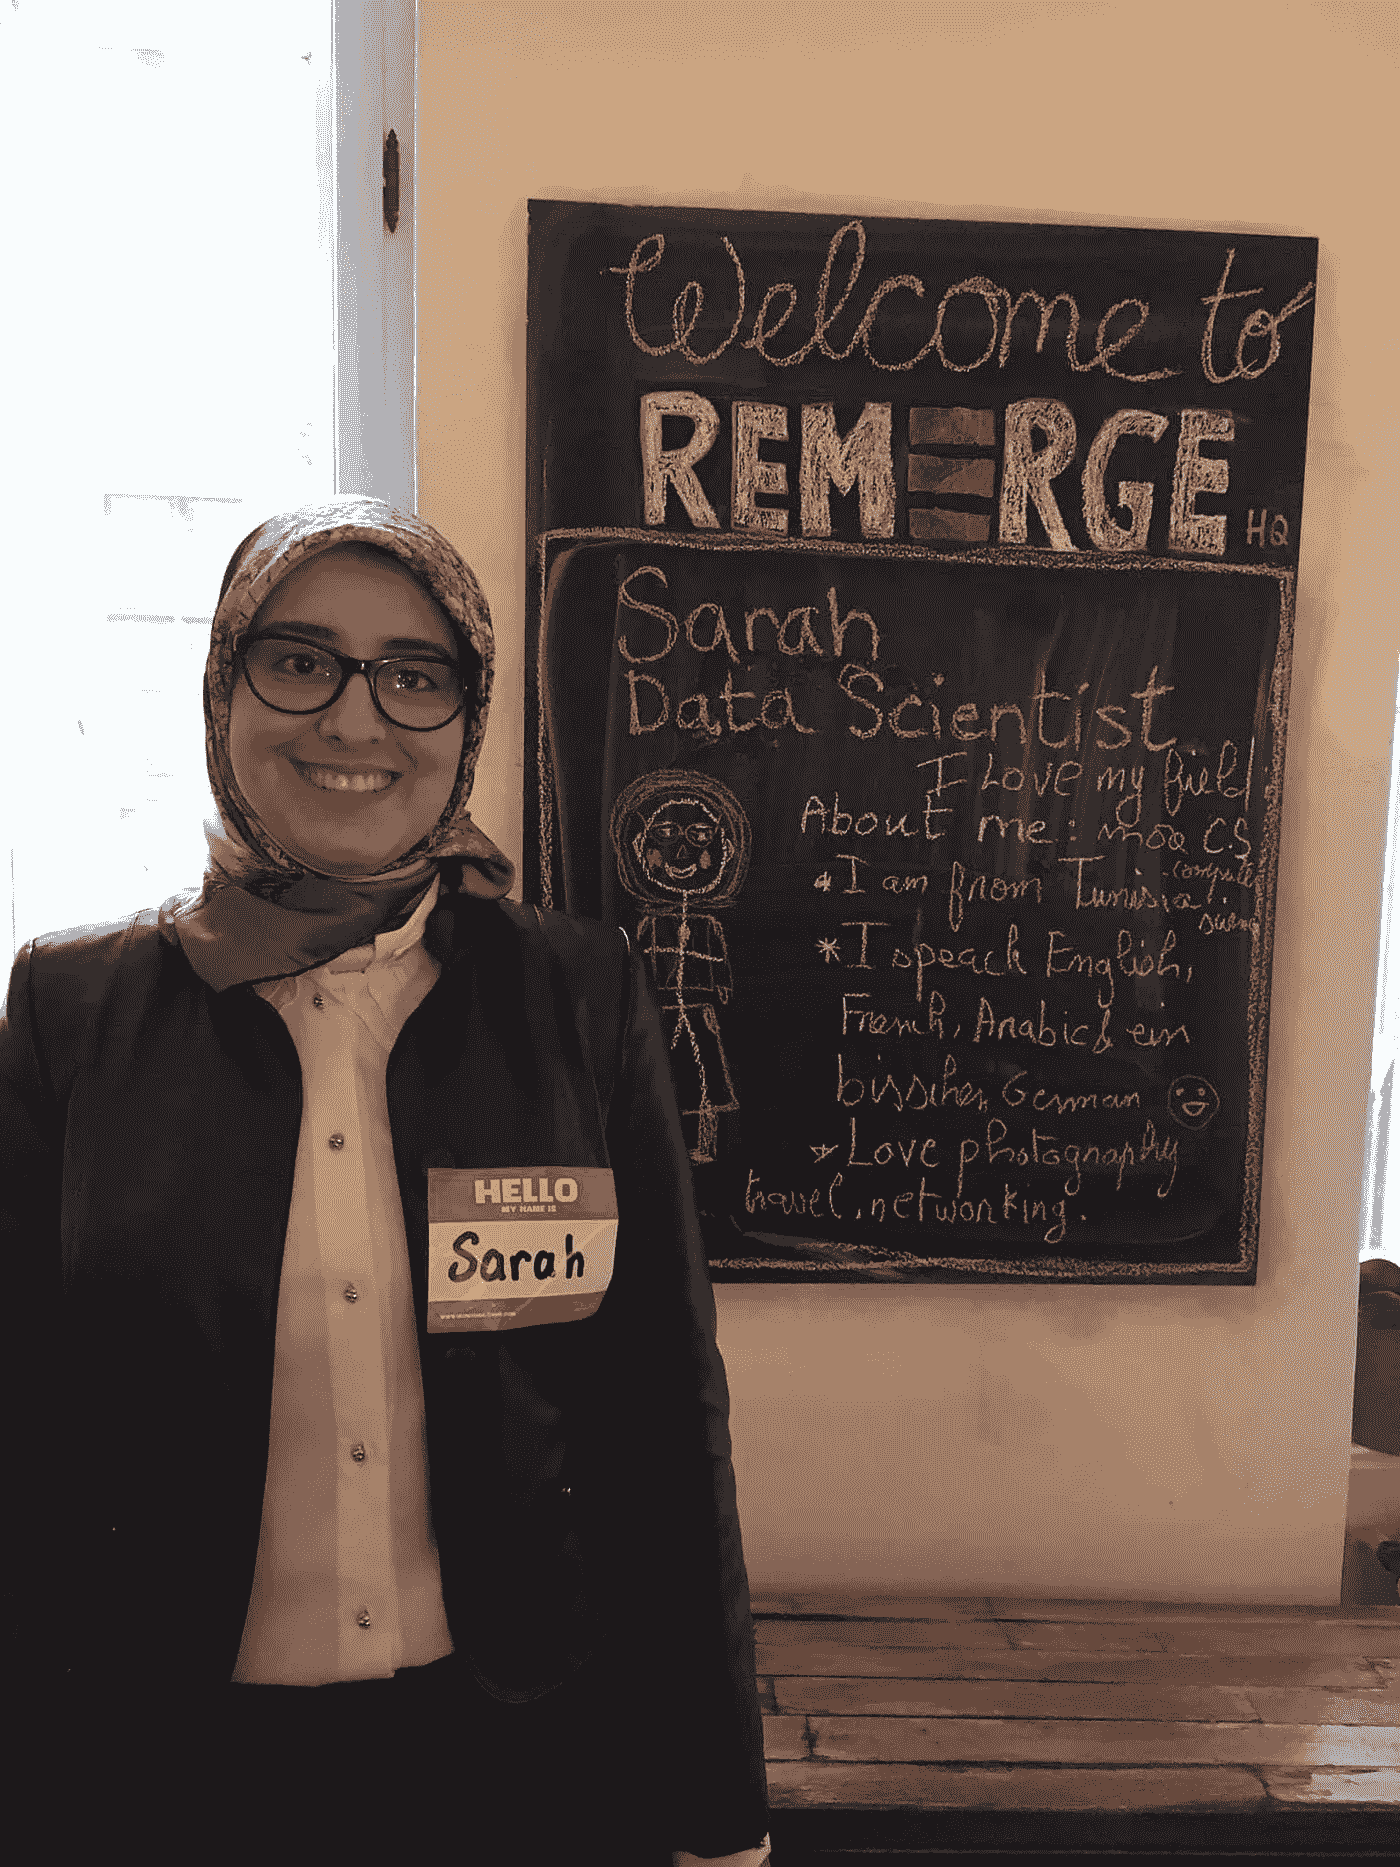 Welcome to
REMERGE HQ
Sarah
Data Scientist
I Love my field
About me: C.S
* I am from Tunisia
* I speack English,
French, Arabic & ein
bisschen German
* Love photography
travel, networking.
HELLO
MY NAME IS
Sarah